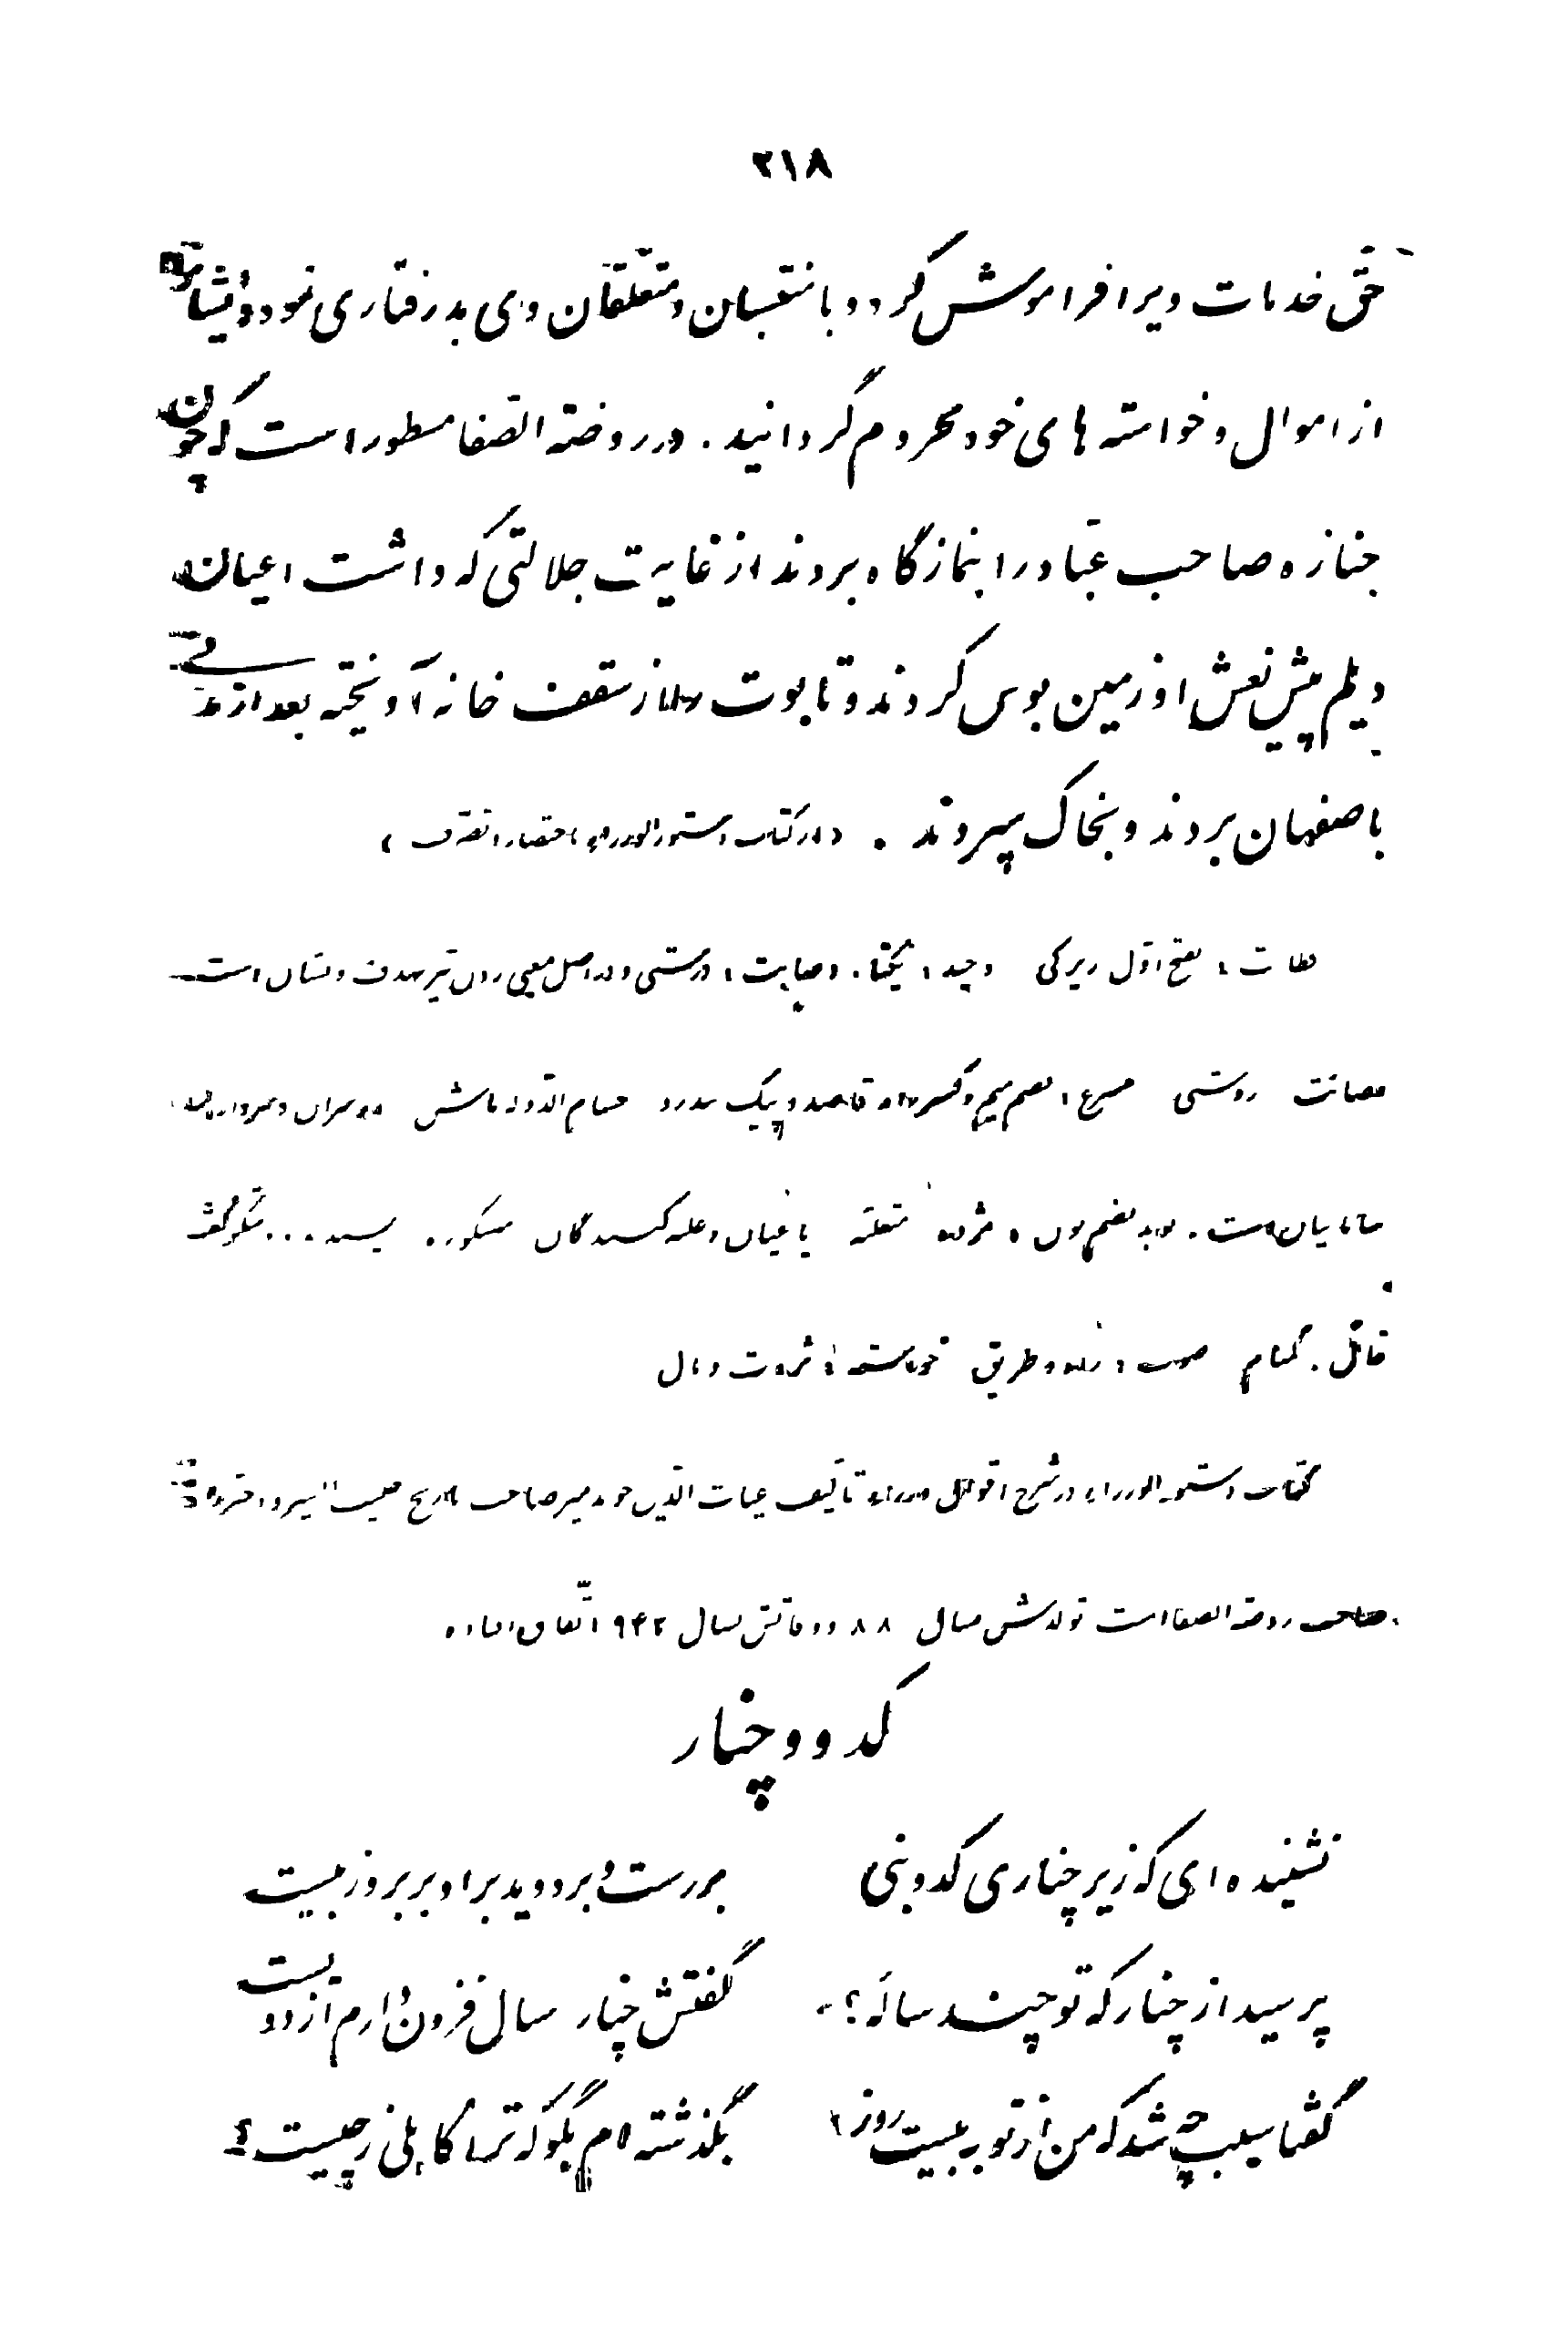 ۲۱۸
حق خدمات ویرا فراموش کرد و با منتسبان و متعلقان وی بدرفتاری نمود و ایشانرا
از اموال و خواسته های خود محروم گردانید . در روضة الصفا مسطور است که چون
جنازه صاحب عبّاد را بنمازگاه بردند از غایت جلالتی که داشت اعیان
دیلم پیش نعش او زمین بوس کردند و تابوت را از سقف خانه آویخته بعد از مدّتی
باصفهان بردند و بخاک سپردند . (از کتاب دستور الوزراء باختصار و تصرف)
بفتح اوّل زیرکی وحید : یکتا . درستی و در اصل معنی تیر بهدف و نشان است
روشنی مسرع : بضم میم و کسر راء قاصد و پیک تندرو حسام الدوله تاش از سران و سرداران
سامانیان است . نوید بضم نون : مژده یاغیان و غلبه کنندگان
قائل . گمنام : راه و طریق خواسته : ثروت و مال
کتاب دستور الوزراء در شرح احوال وزراء تألیف غیاث الدین خوندمیر صاحب تاریخ حبیب السیر و دخترزاده
صاحب روضة الصفا است تولدش بسال ۸۸۰ و وفاتش بسال ۹۴۲ اتّفاق افتاده
کدو و چنار
نشنیده ای که زیر چناری کدو بنی
بررست و بردوید بر او بر بروز بیست
پرسید از چنار که تو چند ساله ؟
گفتش چنار سال فزون دارم از دویست
گفتا سبب چه شد که من از تو به بیست روز
بگذشته ام بگو که ترا کاهلی ز چیست ؟